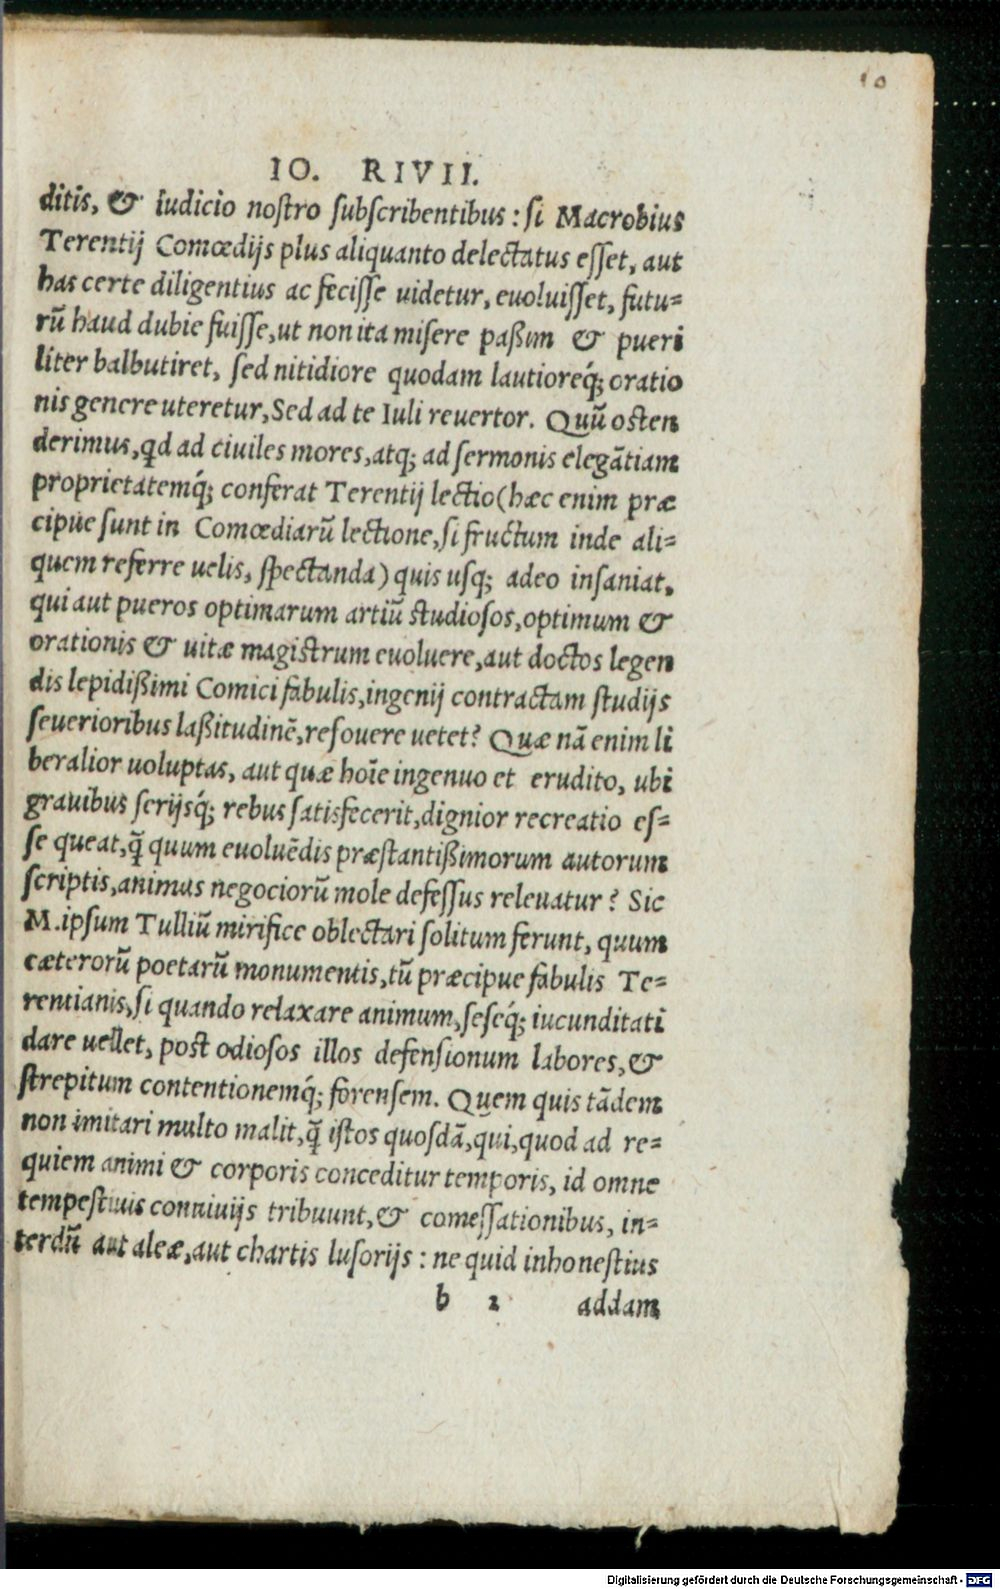 10
IO. RIVII.
ditis, & iudicio nostro subscribentibus: si Macrobius
Terentij Comœdijs plus aliquanto delectatus esset, aut
has certe diligentius ac fecisse uidetur, euoluisset, futu=
rũ haud dubie fuisse, ut non ita misere paßim & pueri
liter balbutiret, sed nitidiore quodam lautioreq́; oratio
nis genere uteretur, Sed ad te Iuli reuertor. Quũ osten
derimus, qd ad ciuiles mores, atq; ad sermonis elegãtiam
proprietatemq́; conferat Terentij lectio (hæc enim præ
cipue sunt in Comœdiarũ lectione, si fructum inde ali=
quem referre uelis, spectanda) quis usq; adeo insaniat,
qui aut pueros optimarum artiũ studiosos, optimum &
orationis & uitæ magistrum euoluere, aut doctos legen
dis lepidißimi Comici fabulis, ingenij contractam studijs
seuerioribus laßitudinẽ, resouere uetet? Quæ nã enim li
beralior uoluptas, aut quæ hoĩe ingenuo et erudito, ubi
grauibus serijsq́; rebus satisfecerit, dignior recreatio es=
se queat, q̃ quum euoluẽdis præstantißimorum autorum
scriptis, animus negociorũ mole defessus releuatur? Sic
M. ipsum Tulliũ mirifice oblectari solitum ferunt, quum
cæterorũ poetarũ monumentis, tũ præcipue fabulis Te=
rentianis, si quando relaxare animum, seseq́; iucunditati
dare uellet, post odiosos illos defensionum labores, &
strepitum contentionemq́; forensem. Quem quis tãdem
non imitari multo malit, q̃ istos quosdã, qui, quod ad re=
quiem animi & corporis conceditur temporis, id omne
tempestiuis conuiuijs tribuunt, & comessationibus, in=
terdũ aut aleæ, aut chartis lusorijs: ne quid inhonestius
b 2 addam
Digitalisierung gefördert durch die Deutsche Forschungsgemeinschaft - DFG